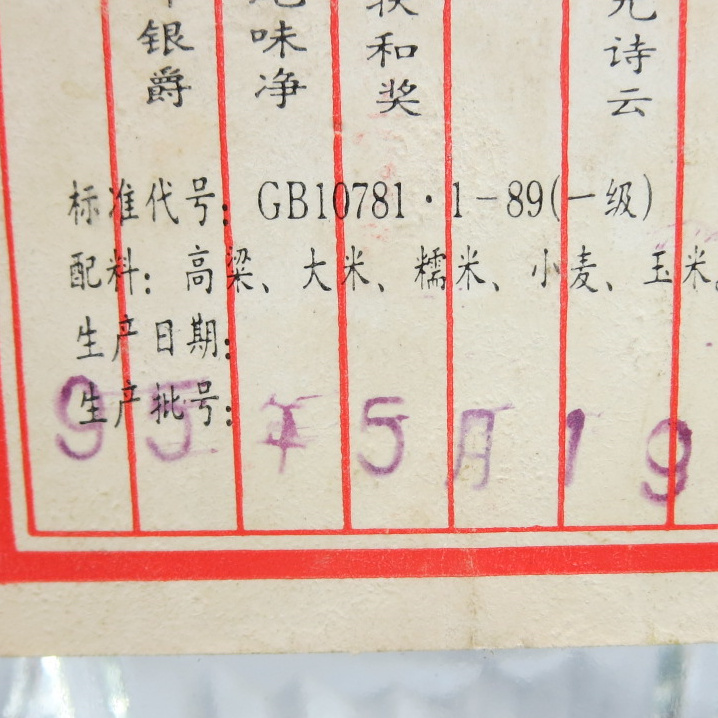 银爵
味净
和奖
诗云
标准代号: GB10781·1-89(一级)
配料: 高粱、大米、糯米、小麦、玉米。
生产日期:
生产批号:
95年5月19